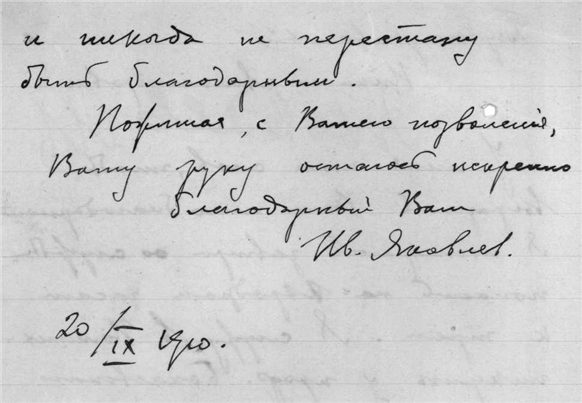 и никогда не перестану
быть благодарным.
Пожимая, с Вашего позволенія,
Вашу руку остаюсь искренно
благодарный Вам
Ив. Яковлев.
20/IX 1910.